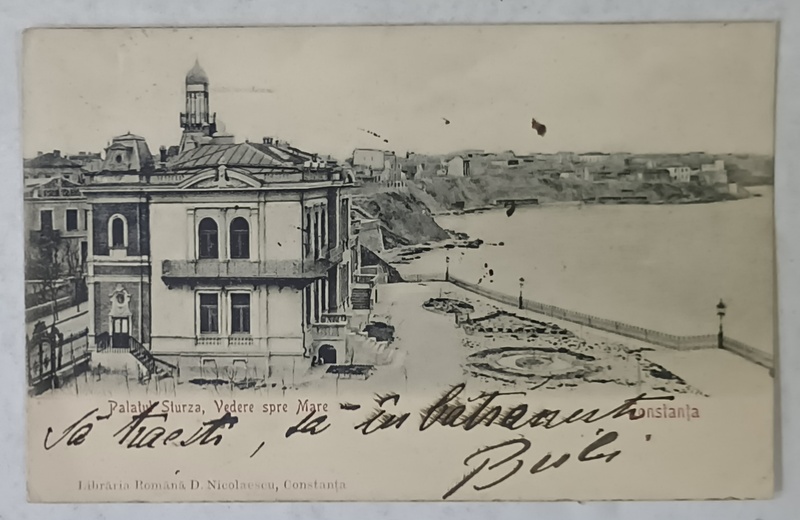 Palatul Sturza, Vedere spre Mare
Constanța
Să trăesti, sa îmbătranesti
Librăria Română D. Nicolaescu, Constanța